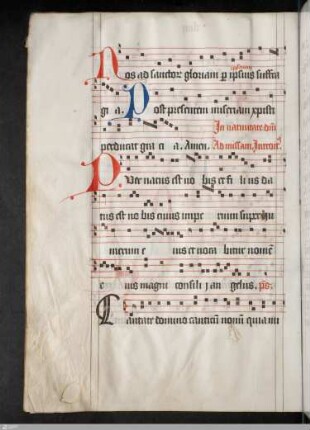 Nos ad sanctor̄ gloriam ꝑ ipsius suffra
gi a. Post presentem miseriam xp̄isti
In natiuitate dn̄i
perducat gra ci a. Amen. Ad missam. Introit̄
Puer natus est no bis et fi li us da
tus est no bis cuius impe rium super hu
merum e ius et voca bitur nomē
e ius magni consili j an gelus. ps.
Cantate domino canticū nouū quia mi